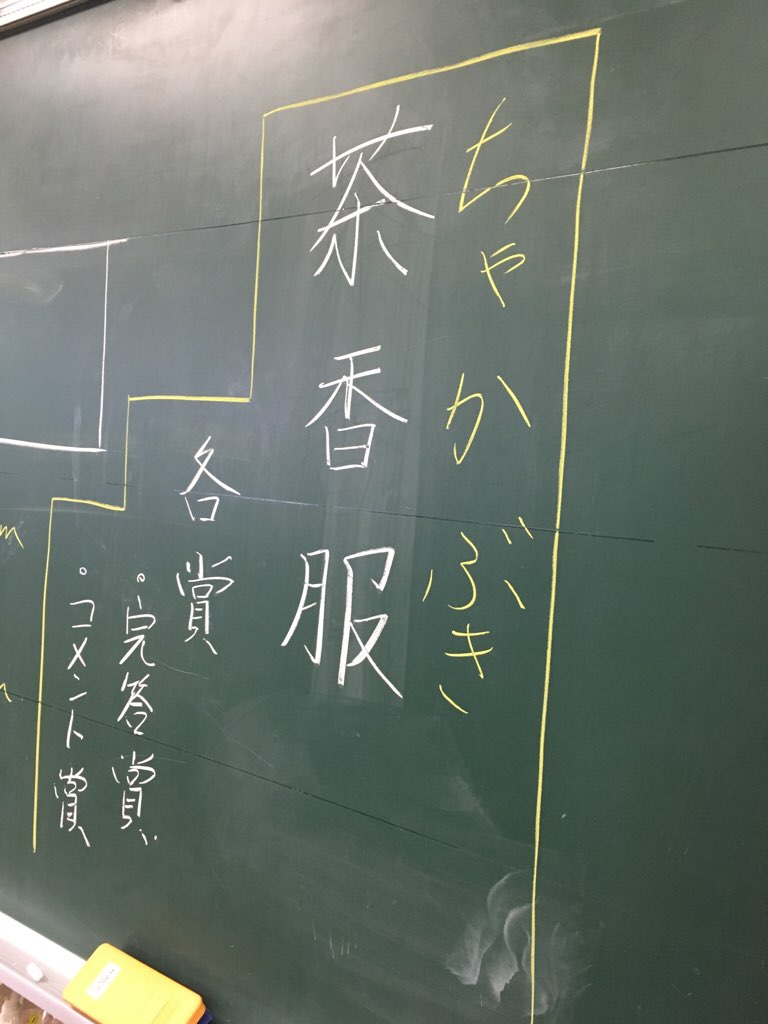 ちゃかぶき
茶香服
各賞
・完答賞
・コメント賞
m